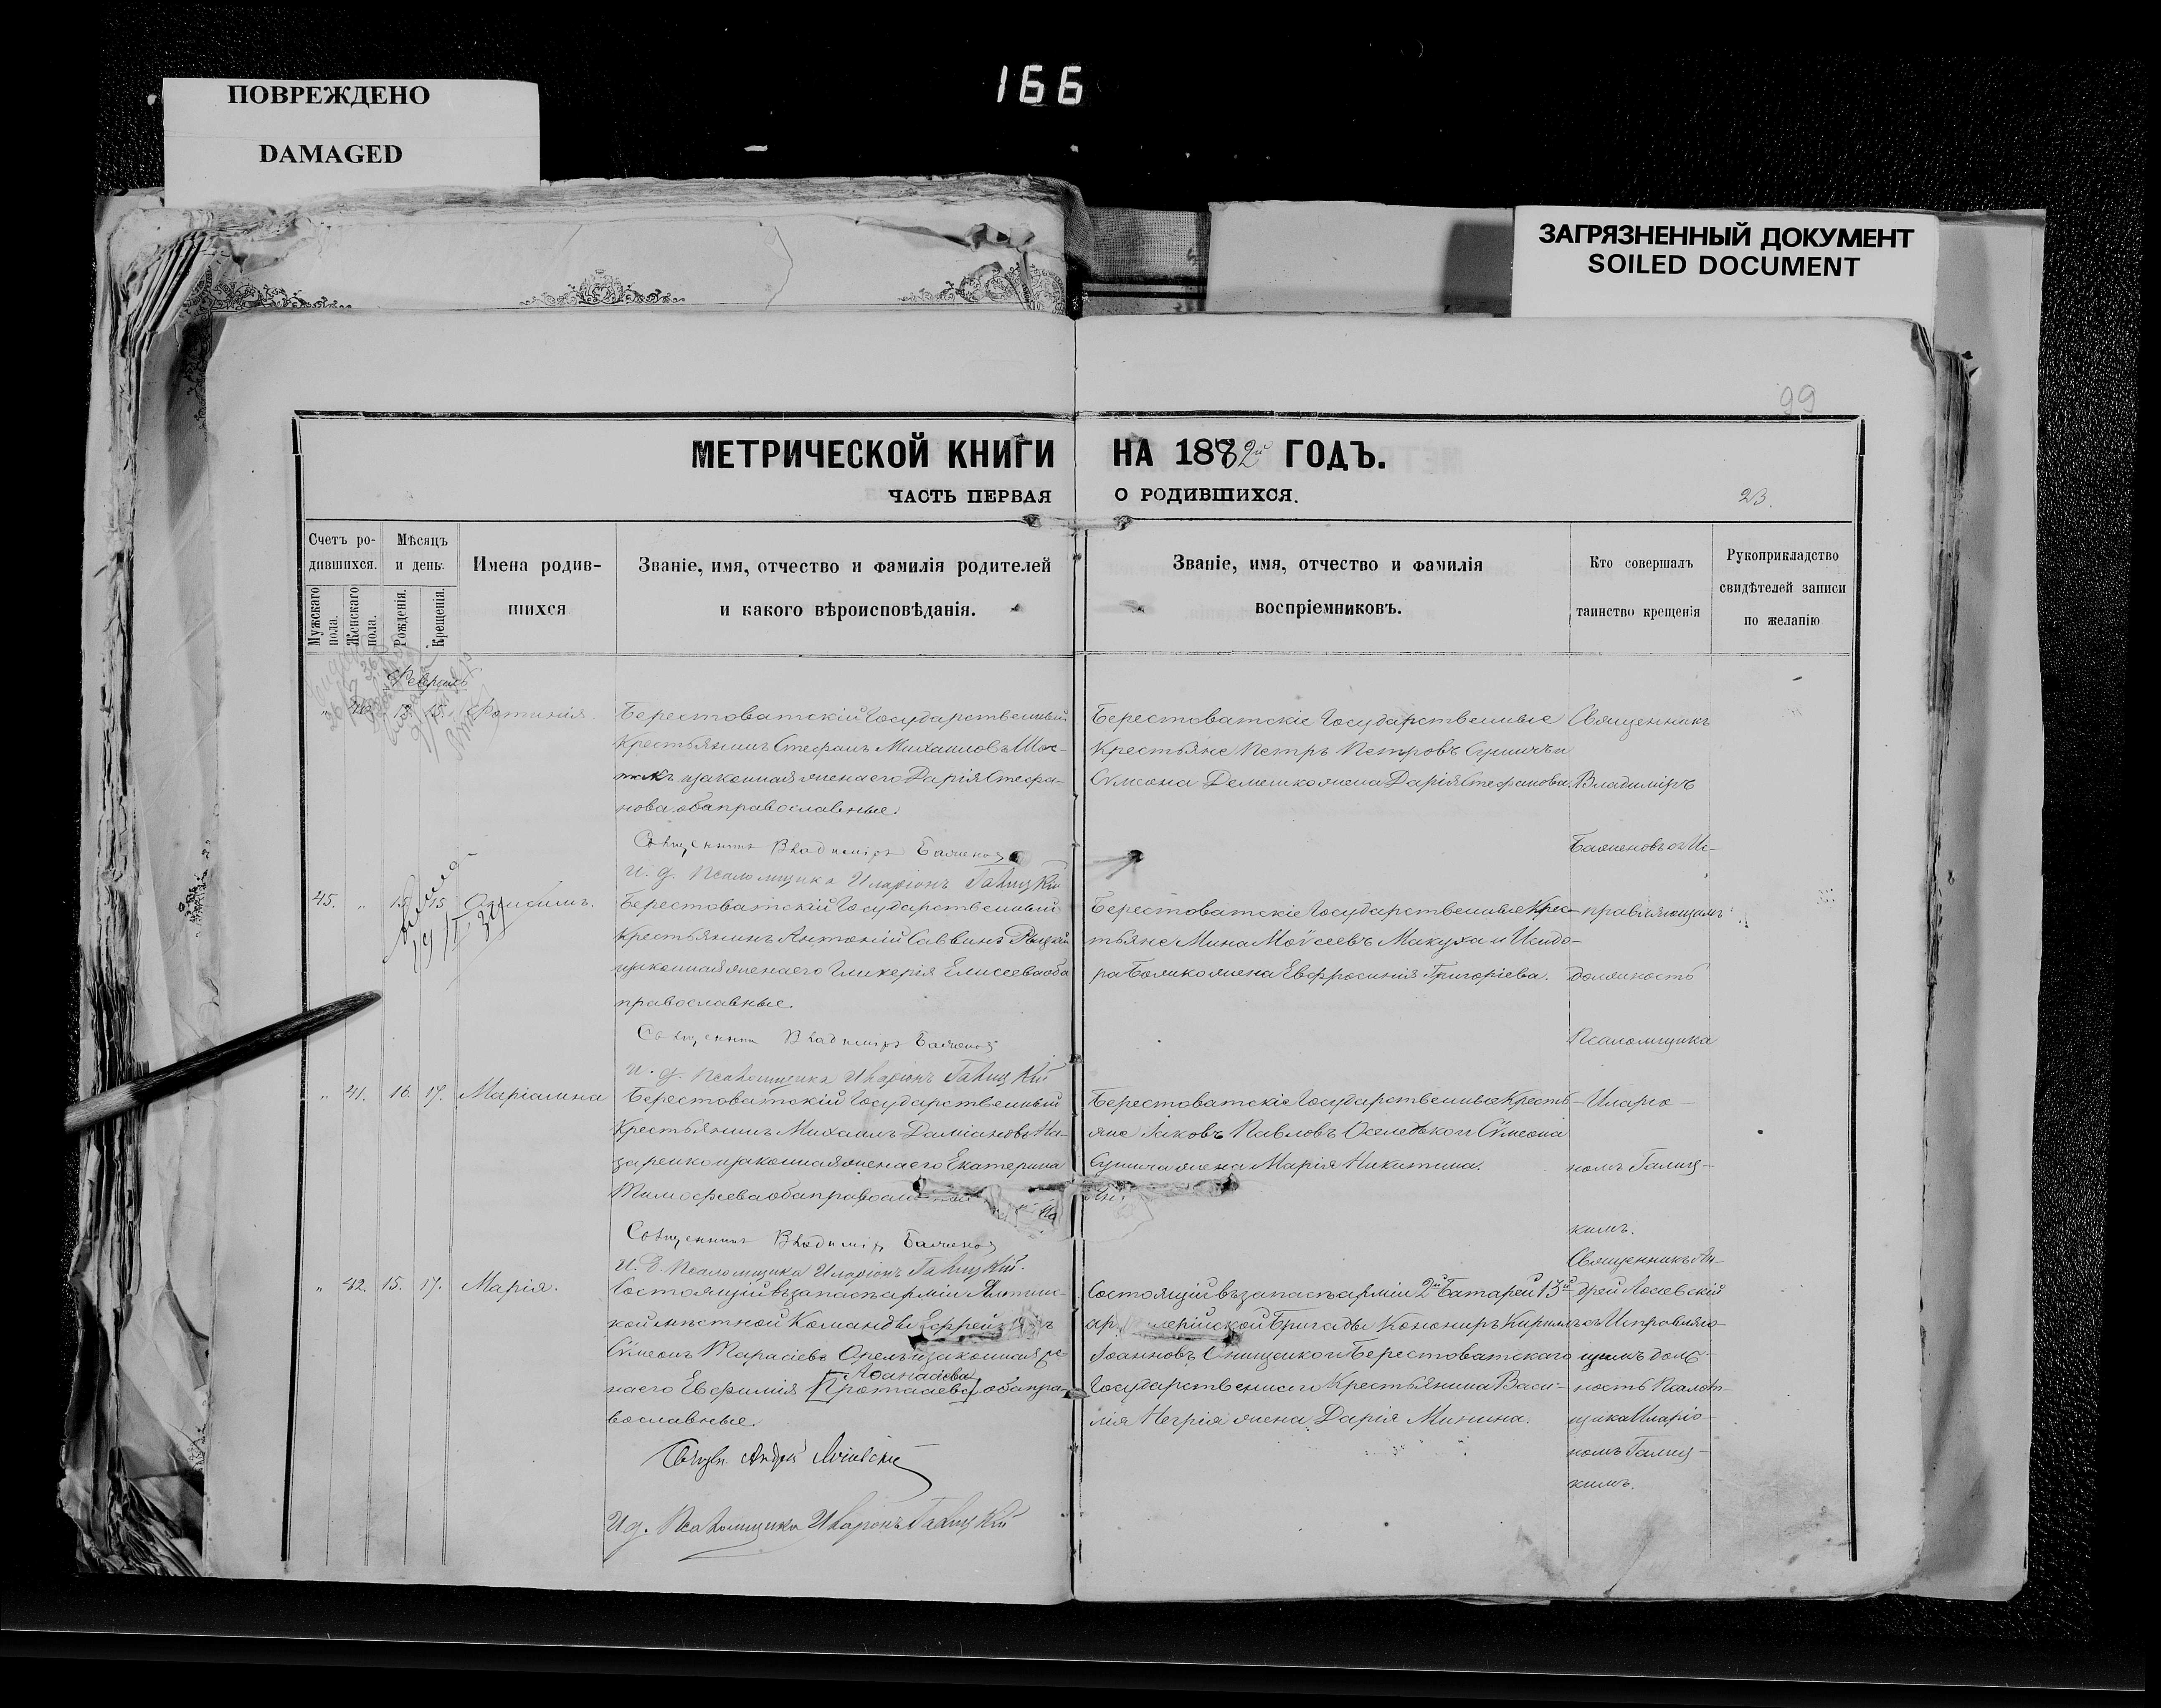 166
ПОВРЕЖДЕНО
DAMAGED
ЗАГРЯЗНЕННЫЙ ДОКУМЕНТ
SOILED DOCUMENT
99
МЕТРИЧЕСКОЙ КНИГИ НА 1882й ГОДЪ.
ЧАСТЬ ПЕРВАЯ О РОДИВШИХСЯ.
23.
Счетъ ро-
дившихся.
Мужскаго пола.
Женскаго пола.
Мѣсяцъ
и день.
Рожденія.
Крещенія.
Имена родив-
шихся
Званіе, имя, отчество и фамилія родителей
и какого вѣроисповѣданія.
Званіе, имя, отчество и фамилія
воспріемниковъ.
Кто совершалъ
таинство крещенія
Рукоприкладство
свидѣтелей записи
по желанію
Февраль
Фотинія
Берестоватскій Государственный
Крестьянинъ Стефанъ Михаиловъ
и законная жена его Дарія Стефа-
нова оба православные.
Священникъ Владиміръ Баженовъ
И. д. Псаломщика Иларіонъ Галицкій
Берестоватскіе Государственные
Крестьяне Петръ Петровъ Сушичъ и
Сѵмеона Демешко жена Дарія Стефанова.
Священникъ
Владиміръ
Баженовъ съ Ис-
45. „ 15 15 Онисимъ.
Берестоватскій Государственный
Крестьянинъ Антоній Саввинъ
и законная жена его Гликерія Елисеева оба
православные.
Священникъ Владиміръ Баженовъ
И. д. Псаломщика Иларіонъ Галицкій
Берестоватскіе Государственные Крес-
тьяне Мина Моѵсеевъ Макуха и Исидо-
ра Божко жена Евфросинія Григоріева.
правляющимъ
должность
Псаломщика
„ 41. 16. 17. Маріамна
Берестоватскій Государственный
Крестьянинъ Михаилъ Даміановъ На-
заренко и законная жена его Екатерина
Тимофеева оба православные
Священникъ Владиміръ Баженовъ
И. д. Псаломщика Иларіонъ Галицкій.
Берестоватскіе Государственные Кресть-
яне Іаковъ Павловъ Оселедько и Сѵмеона
Сушича жена Марія Никитина.
Иларіо-
номъ Галиц-
кимъ.
„ 42. 15. 17. Марія.
Состоящій въ запасѣ арміи
кой мѣстной Команды Ефрейторъ
Сѵмеонъ Тарасіевъ Орелъ и законная же-
на его Евфимія [Протасіева] Аѳанасіева оба пра-
вославные.
Священ. Андрей Лосіевскій
И. д. Псаломщика Иларіонъ Галицкій
Состоящій въ запасѣ арміи 2й Батареи 13й
артиллерійской Бригады Конониръ Кириллъ
Іоанновъ Онищенко и Берестоватскаго
Государственнаго Крестьянина Васи-
лія Негрія жена Дарія Минина.
Священникъ Ан-
дрей Лосіевскій
съ Исправляю-
щимъ долж-
ность Псалом-
щика Иларіо-
номъ Галиц-
кимъ.